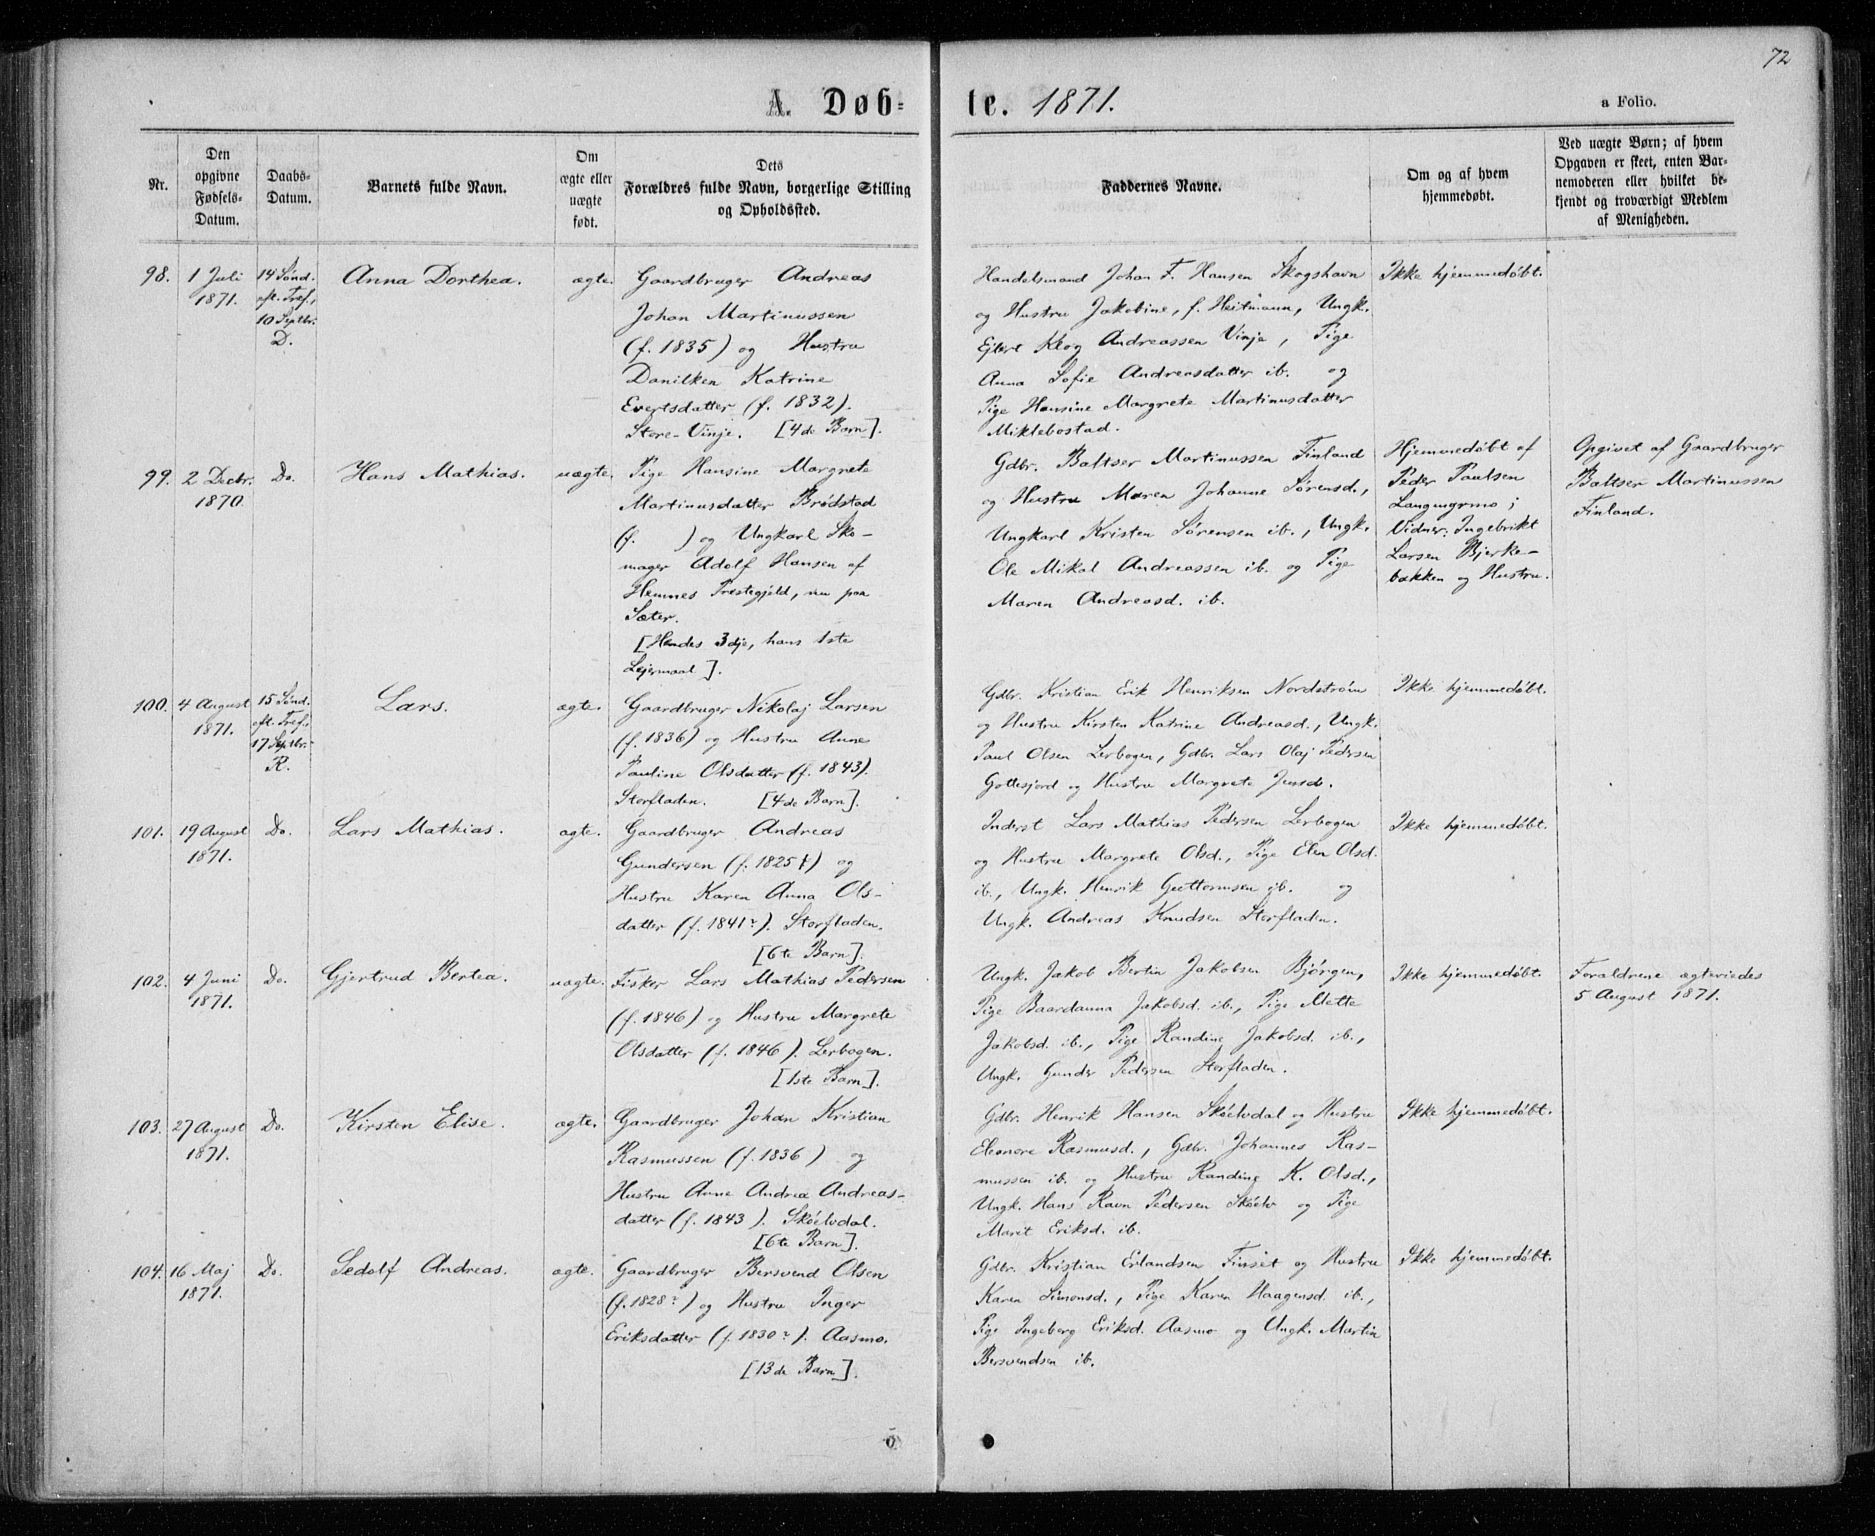 72
A. Døb-
te. 1871.
a Folio.
Nr.
Den
opgivne
Fødsels-
Datum.
Daabs-
Datum.
Barnets fulde Navn.
Om
ægte eller
uægte
født.
Dets
Forældres fulde Navn, borgerlige Stilling
og Opholdssted.
Faddernes Navne.
Om og af hvem
hjemmedøbt.
Ved uægte Børn; af hvem
Opgaven er skeet, enten Bar-
nemoderen eller hvilket be-
kjendt og troværdigt Medlem
af Menigheden.
98.
1 Juli
1871.
14 Sønd.
eft. Tref.,
10 Septbr.
D.
Anna Dorthea.
ægte.
Gaardbruger Andreas
Johan Martinussen
(f. 1835) og Hustru
Danilken Katrine
Evertsdatter (f. 1832).
Store-Vinje. [4de Barn].
Handelsmand Johan F. Hansen Skogshavn
og Hustru Jakobine, f. Heitmann, Ungk.
Ejlert Klog Andreassen Vinje, Pige
Anna Sofie Andreasdatter ib. og
Pige Hansine Margrete Martinusdatter
Miklebostad.
Ikke hjemmedøbt.
99.
2 Decbr.
1870.
Do.
Hans Mathias.
uægte.
Pige Hansine Margrete
Martinusdatter Brødstad
(f. ) og Ungkarl Sko-
mager Adolf Hansen af
Hemnes Præstegjeld, nu paa
Sæter.
[Hendes 3dje, hans 1ste
Lejermaal].
Gdbr. Baltser Martinussen Finland
og Hustru Maren Johanne Sørensd.,
Ungkarl Kristen Sørensen ib., Ungk.
Ole Mikal Andreassen ib. og Pige
Maren Andreasd. ib.
Hjemmedøbt af
Peder Paulsen
Langmyrmo;
Vidner: Ingebrikt
Larsen Bjerke-
bakken og Hustru.
Opgivet af Gaardbruger
Baltser Martinussen
Finland.
100.
4 August
1871.
15 Sønd.
eft. Tref.,
17 Septbr.
R.
Lars.
ægte.
Gaardbruger Nikolaj Larsen
(f. 1836) og Hustru Anne
Pauline Olsdatter (f. 1843).
Storfladen. [4de Barn].
Gdbr. Kristian Erik Henriksen Nordstrøm
og Hustru Kirsten Katrine Andreasd., Ungk.
Paul Olsen Lerbogen, Gdbr. Lars Olaj Pedersen
Gottesjord og Hustru Margrete Jensd.
Ikke hjemmedøbt.
101.
19 August
1871.
Do.
Lars Mathias.
ægte.
Gaardbruger Andreas
Gundersen (f. 1825?) og
Hustru Karen Anna Ols-
datter (f. 1841?). Storfladen.
[6te Barn].
Inderst Lars Mathias Pedersen Lerbogen
og Hustru Margrete Olsd., Pige Elen Olsd.
ib., Ungk. Henrik Guttormsen ib. og
Ungk. Andreas Knudsen Storfladen.
Ikke hjemmedøbt.
102.
4 Juni
1871.
Do.
Gjertrud Bertea.
uægte.
Fisker Lars Mathias Pedersen
(f. 1846) og Hustru Margrete
Olsdatter (f. 1846). Lerbogen.
[1ste Barn].
Ungk. Jakob Bertin Jakobsen Bjørgen,
Pige Baardanna Jakobsd. ib., Pige Mette
Jakobsd. ib., Pige Randine Jakobsd. ib.,
Ungk. Gunder Pedersen Storfladen.
Ikke hjemmedøbt.
Forældrene ægteviedes
5 August 1871.
103.
27 August
1871.
Do.
Kirsten Elise.
ægte.
Gaardbruger Johan Kristian
Rasmussen (f. 1836) og
Hustru Anne Andrea Andreas-
datter (f. 1843). Skóelvdal.
[6te Barn].
Gdbr. Henrik Hansen Skóelvdal og Hustru
Eleonore Rasmusd., Gdbr. Johannes Ras-
mussen ib. og Hustru Randine K. Olsd.,
Ungk. Hans Ravn Pedersen Skóelv og Pige
Marit Eriksd. ib.
Ikke hjemmedøbt.
104.
16 Maj
1871.
Do.
Sedolf Andreas.
ægte.
Gaardbruger Bersvend Olsen
(f. 1828?) og Hustru Inger
Eriksdatter (f. 1830?). Aasmo.
[13de Barn].
Gdbr. Kristian Erlandsen Finset og Hustru
Karen Simonsd., Pige Karen Haagensd. ib.,
Pige Ingeberg Eriksd. Aasmo og Ungk. Martin
Bersvendsen ib.
Ikke hjemmedøbt.